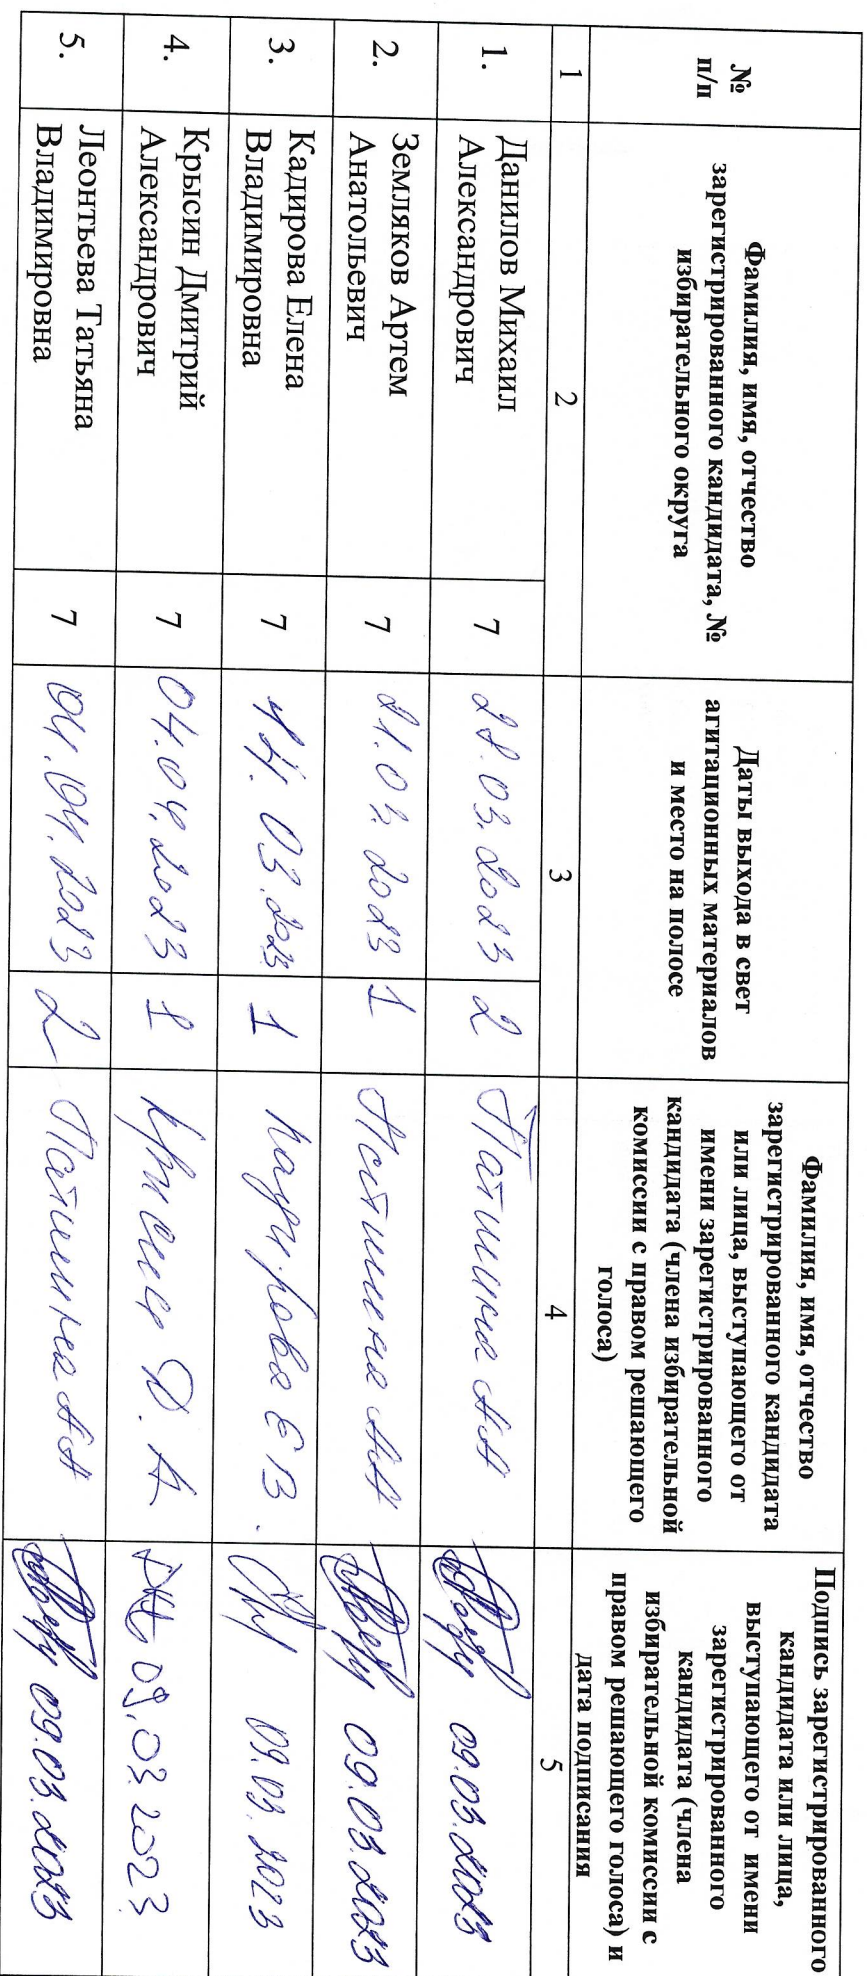 №
п/п
Фамилия, имя, отчество
зарегистрированного кандидата, №
избирательного округа
Даты выхода в свет
агитационных материалов
и место на полосе
Фамилия, имя, отчество
зарегистрированного кандидата
или лица, выступающего от
имени зарегистрированного
кандидата (члена избирательной
комиссии с правом решающего
голоса)
Подпись зарегистрированного
кандидата или лица,
выступающего от имени
зарегистрированного
кандидата (члена
избирательной комиссии с
правом решающего голоса) и
дата подписания
1
2
3
4
5
1.
Данилов Михаил
Александрович
7
28.03.2023
2
09.03.2023
2.
Земляков Артем
Анатольевич
7
21.03.2023
1
09.03.2023
3.
Кадирова Елена
Владимировна
7
14.03.2023
1
Кадирова Е В.
09.03.2023
4.
Крысин Дмитрий
Александрович
7
04.04.2023
1
Крысин Д. А
09.03.2023
5.
Леонтьева Татьяна
Владимировна
7
04.04.2023
2
09.03.2023